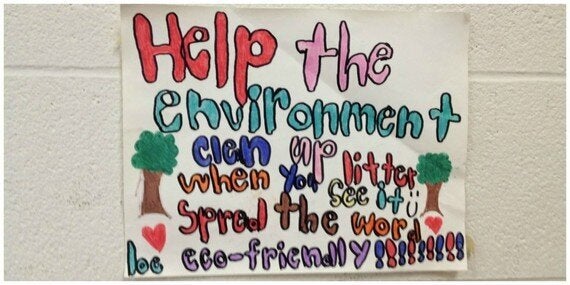 Help the
environment
clen up litter
when you see it :)
Spread the word
be eco-friendly!!!!!!!!!